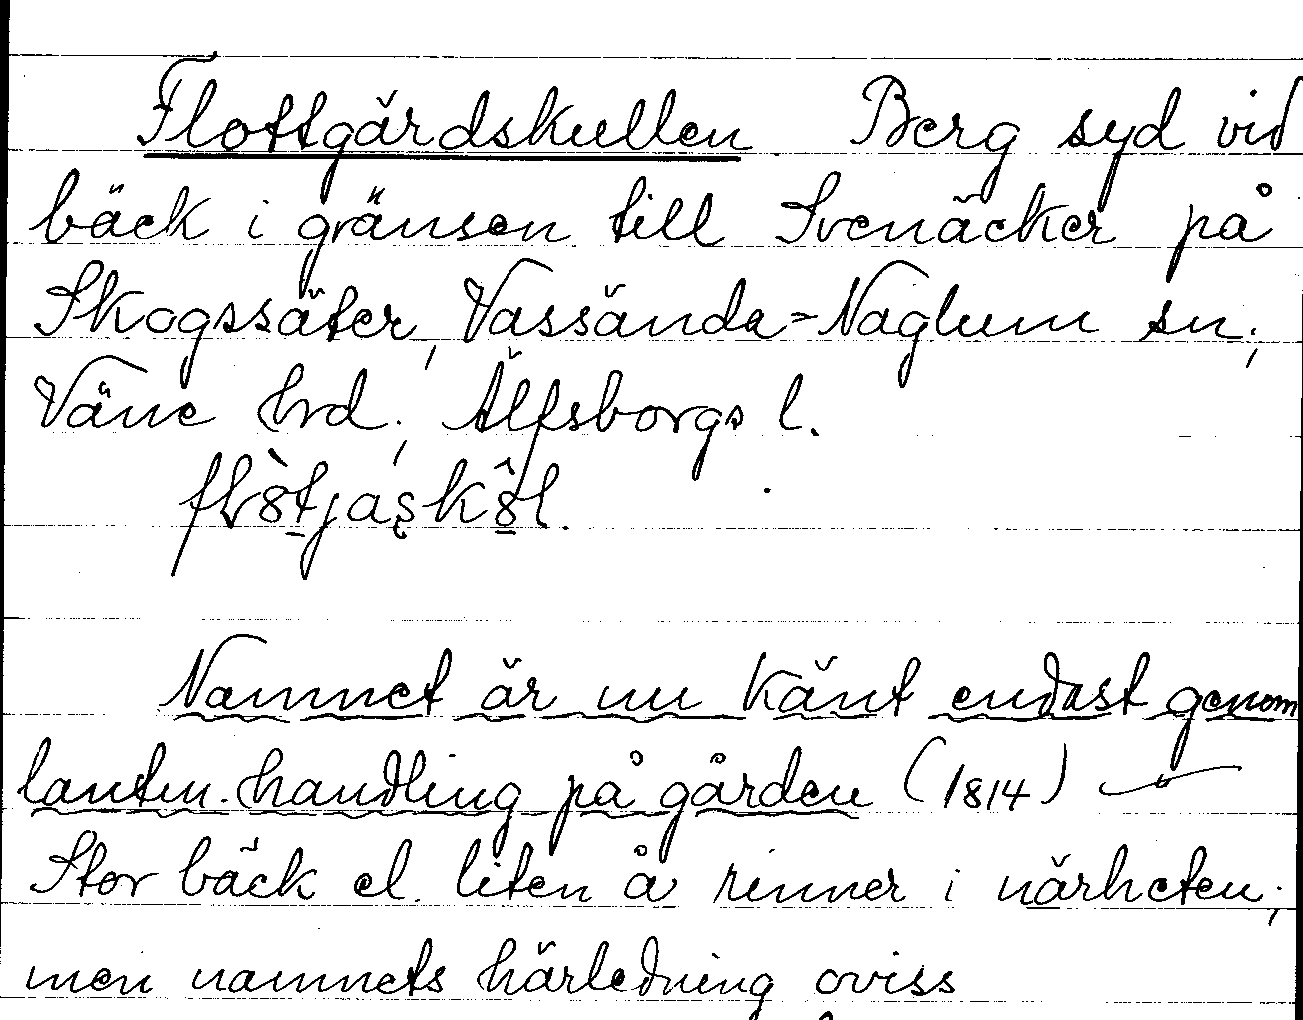 Flottgärdskullen Berg syd vid
bäck i gränsen till Svenäcker på
Skogssäter, Vassända-Naglum sn,
Väne hrd., Älfsborgs l.
Namnet är nu känt endast genom
lantm. handling på gården (1814)
Stor bäck el. liten å rinner i närheten,
men namnets härledning oviss